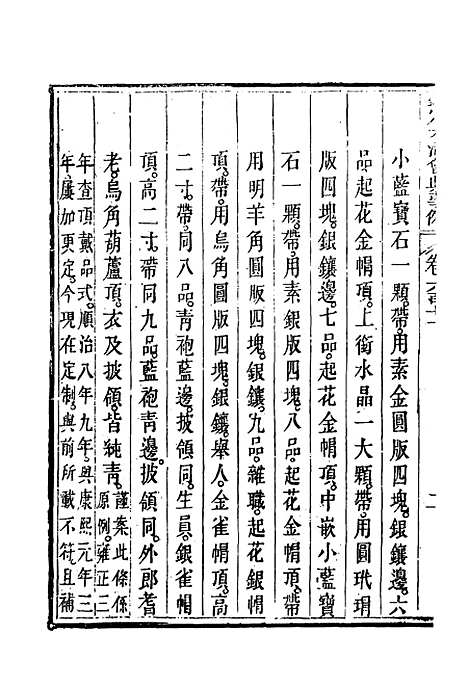 小藍寶石一顆。帶。用素金圓版四塊。銀鑲邊。六
品。起花金帽頂。上銜水晶一大顆。帶。用圓玳瑁
版四塊。銀鑲邊。七品。起花金帽頂。中嵌小藍寶
石一顆。帶。用素銀圓版四塊。八品。起花金帽頂。帶
用明羊角圓版四塊。銀鑲。九品。雜職。起花銀帽
頂。帶。用烏角圓版四塊。銀鑲。舉人。金雀帽頂。高
二寸。帶。同八品。青袍藍邊。披領同。生員。銀雀帽
頂。高二寸。帶同九品。藍袍青邊。披領同。外郎耆
老。烏角葫蘆頂。衣及披領。皆純青。謹案此條係
原例。雍正三
年查頂戴品式。順治八年九年。與康熙元年三
年屢加更定。今現在定制。與前所載不符。且補